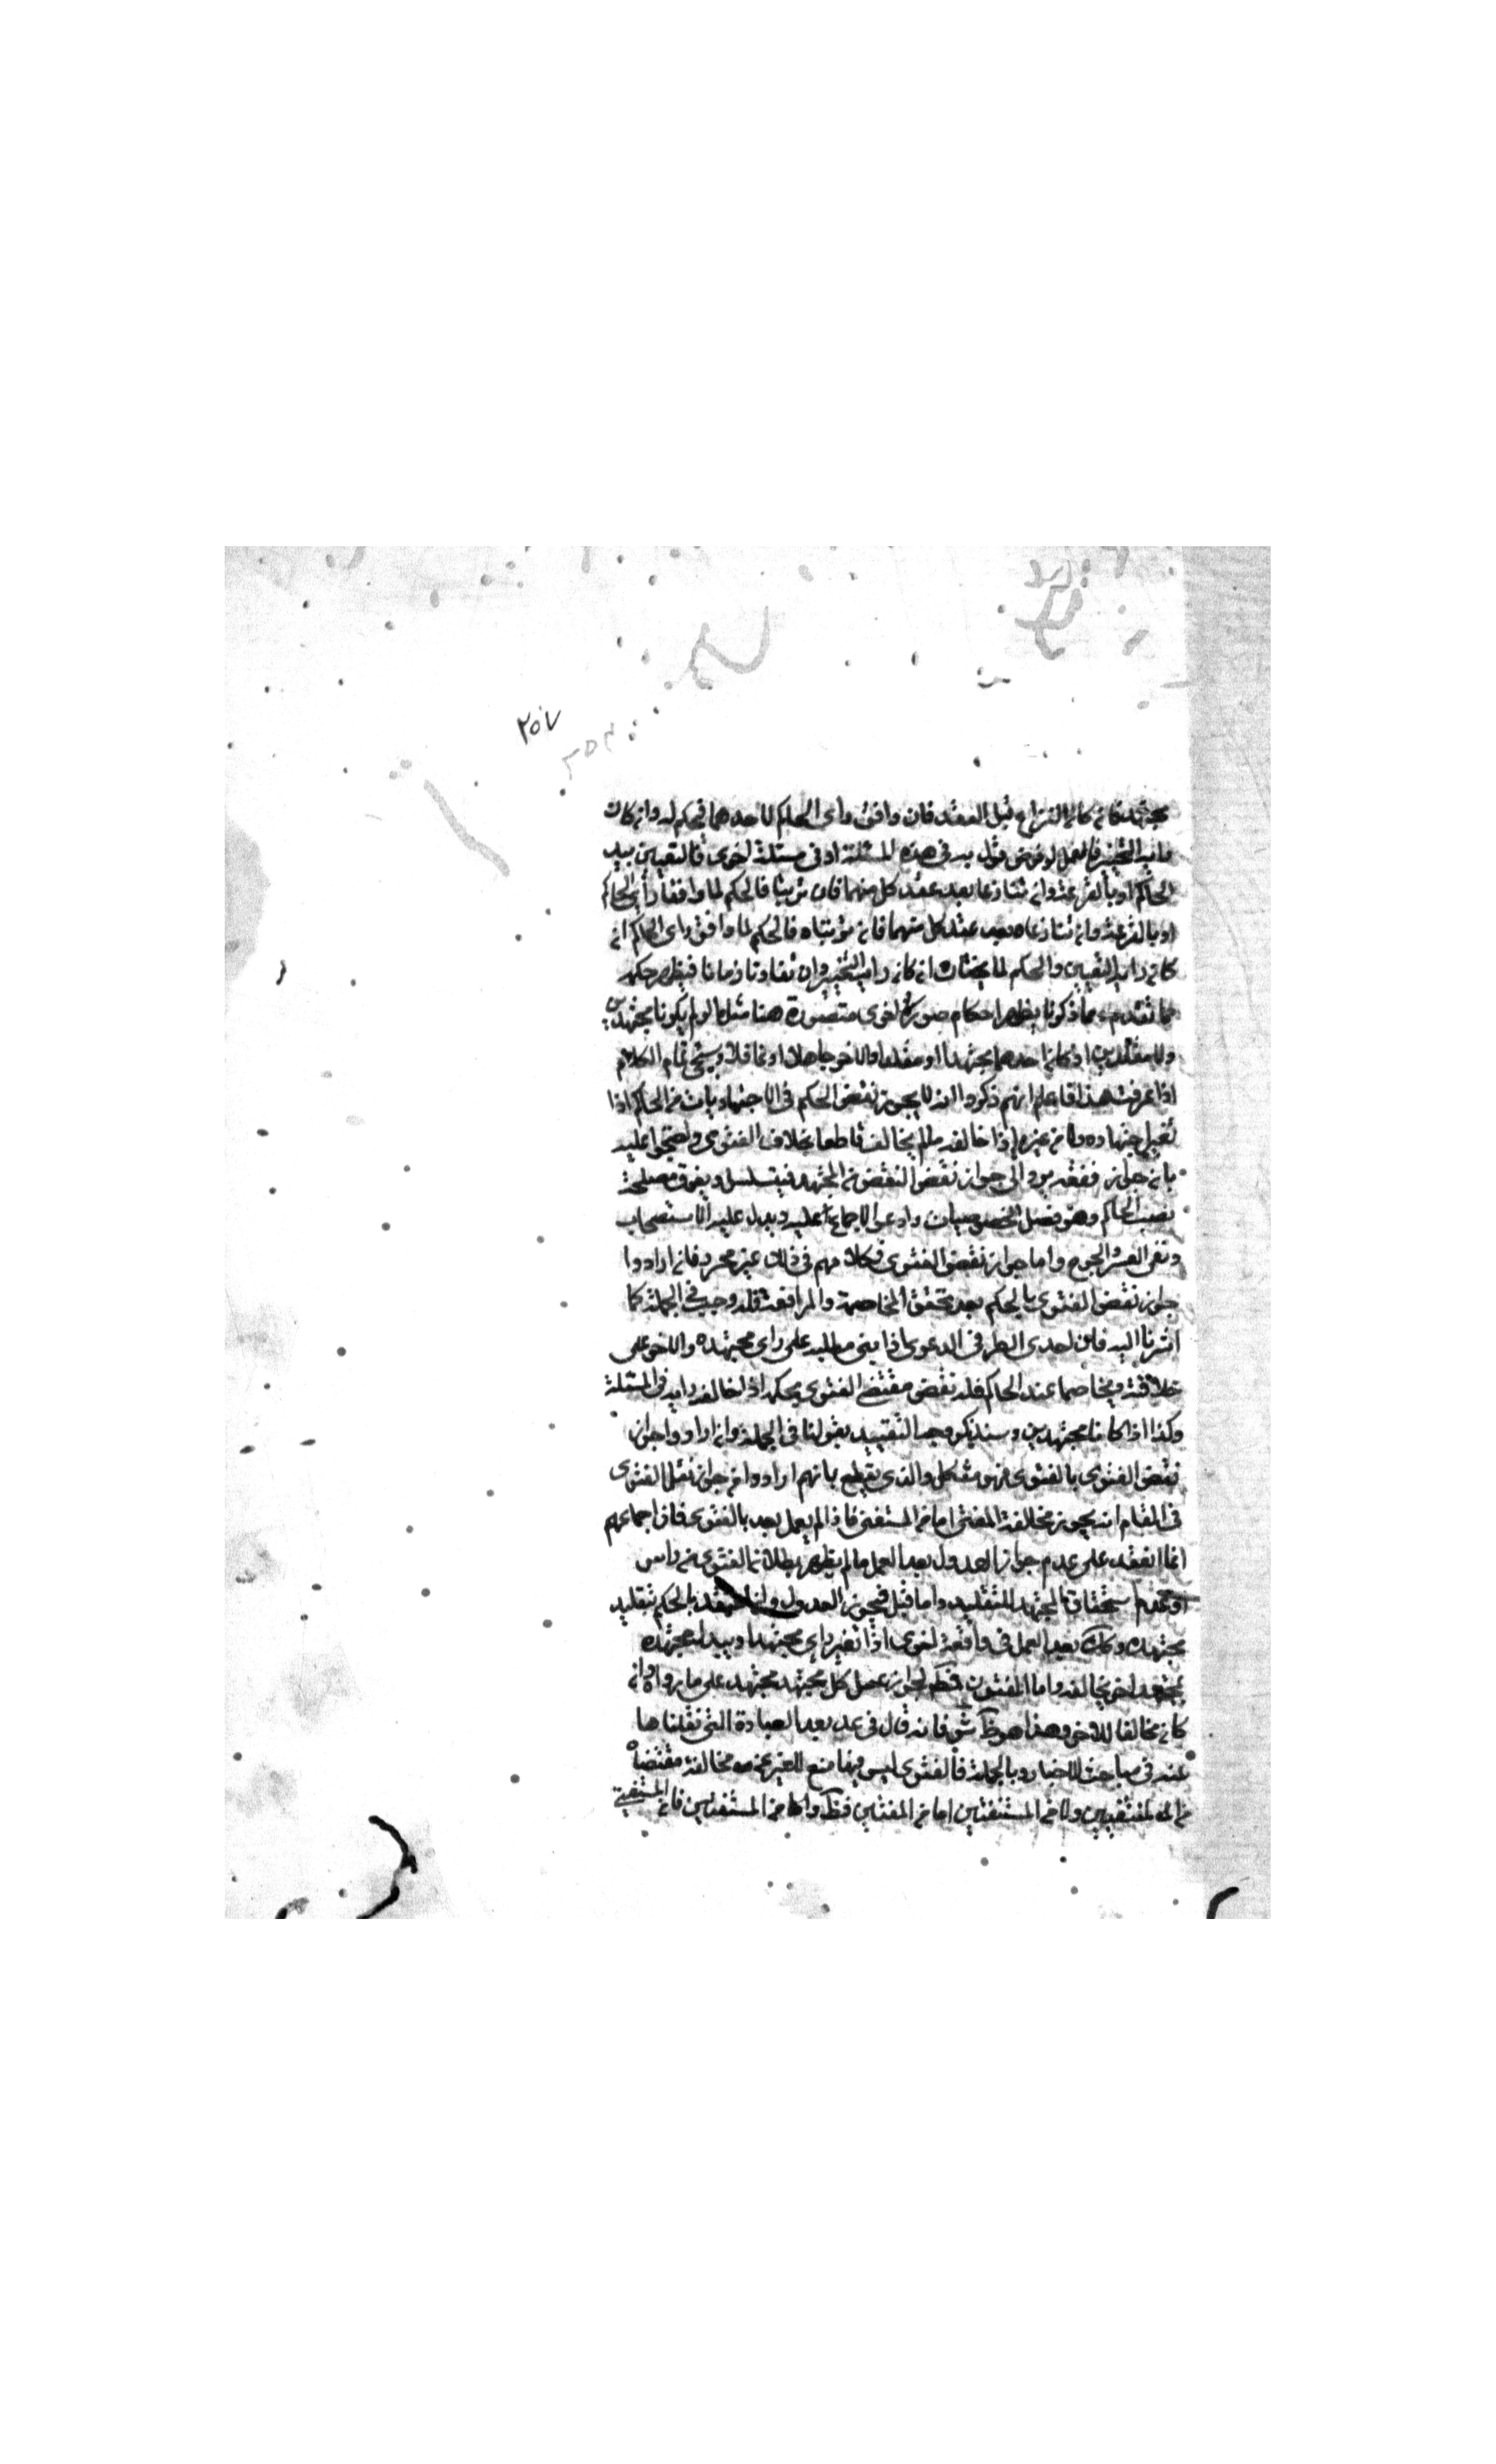 ٢٥٧
مجتهد فان كان النزاع قبل العقد فان وافق رأى الحاكم لاحدهما فيحكم له وان كان
رايه التخيير فالعمل لو فرض قول به فى هذه المسئلة او فى مسئلة اخرى فالتعيين بيد
الحاكم او بالقرعة وان تنازعا بعد عقد كل منهما فان ترتبا فالحكم لما وافقا رأى الحاكم
او بالقرعة وان تنازعاه بعد عقد كل منهما فان ترتباه فالحكم لما وافق راى الحاكم ان
كان رايه التعيين والحكم لما يختاره ان كان رايه التخيير وان تفاوتا زمانا فيظهر حكمه
مما تقدم ومما ذكرنا يظهر احكام صور اخرى متصورة هنا مثل ما لو لم يكونا مجتهدين
ولا مقلدين او كان احدهما مجتهدا او مقلدا والاخر جاهلا او غافلا وسيجئ تمام الكلام
اذا عرفت هذا فاعلم انهم ذكروا انه لا يجوز نقض الحكم فى الاجتهاديات من الحاكم اذا
تغير اجتهاده ولا من غيره اذا خالفه ما لم يخالف قاطعا بخلاف الفتوى واحتجوا عليه
بان جواز نقضه يؤدى الى جواز نقض النقض من المجتهد فيتسلسل ويفوت مصلحة
نصب الحاكم وهو فصل الخصومات وادعى الاجماع عليه ويدل عليه الاستصحاب
ونفى العسر والحرج واما جواز نقض الفتوى فكلامهم فى ذلك غير محرر فان ارادوا
جواز نقض الفتوى بالحكم بعد تحقق المخاصمة والمرافعة فله وجه فى الجملة كما
اشرنا اليه فان احدى الطرفى الدعوى اذا بنى مطلبه على راى مجتهده والاخر على
خلافه وتخاصما عند الحاكم فله نقض مقتضى الفتوى بحكمه اذا خالف رايه فى المسئلة
وكذا اذا كانا مجتهدين وسنذكر وجه التقييد بقولنا فى الجملة وان ارادوا جواز
نقض الفتوى بالفتوى فهو مشكل والذى يقطع بانهم ارادوا من جواز نقل الفتوى
فى المقام انه يجوز مخالفة المفتى اما من المستفتى فاذا لم يعمل بعد بالفتوى فان اجماعهم
انما انعقد على عدم جواز العدول بعد العمل ما لم يظهر بطلان الفتوى من راس
او عدم استحقاق المجتهد للتقليد واما قبل فيجوز العدول بالحكم بتقليد
مجتهده وكذلك بعد العمل فى واقعة اخرى اذا تغير راى مجتهدا وبدل مجتهده
بمجتهد اخر يخالفه واما المفتون فظ لجواز عمل كل مجتهد مجتهد على ما يراه وان
كان مخالفا للاخر وهذا هو ظ ش فانه قال فى عد بعد العبادة التى نقلناها
عنه فى مباحث الاخبار وبالجملة فالفتوى ليس فيها منع للغير عن مخالفة مقتضاه
من المفتيين ولا من المستفتين اما من المفتين فظ واما من المستفتين فان المستفتى